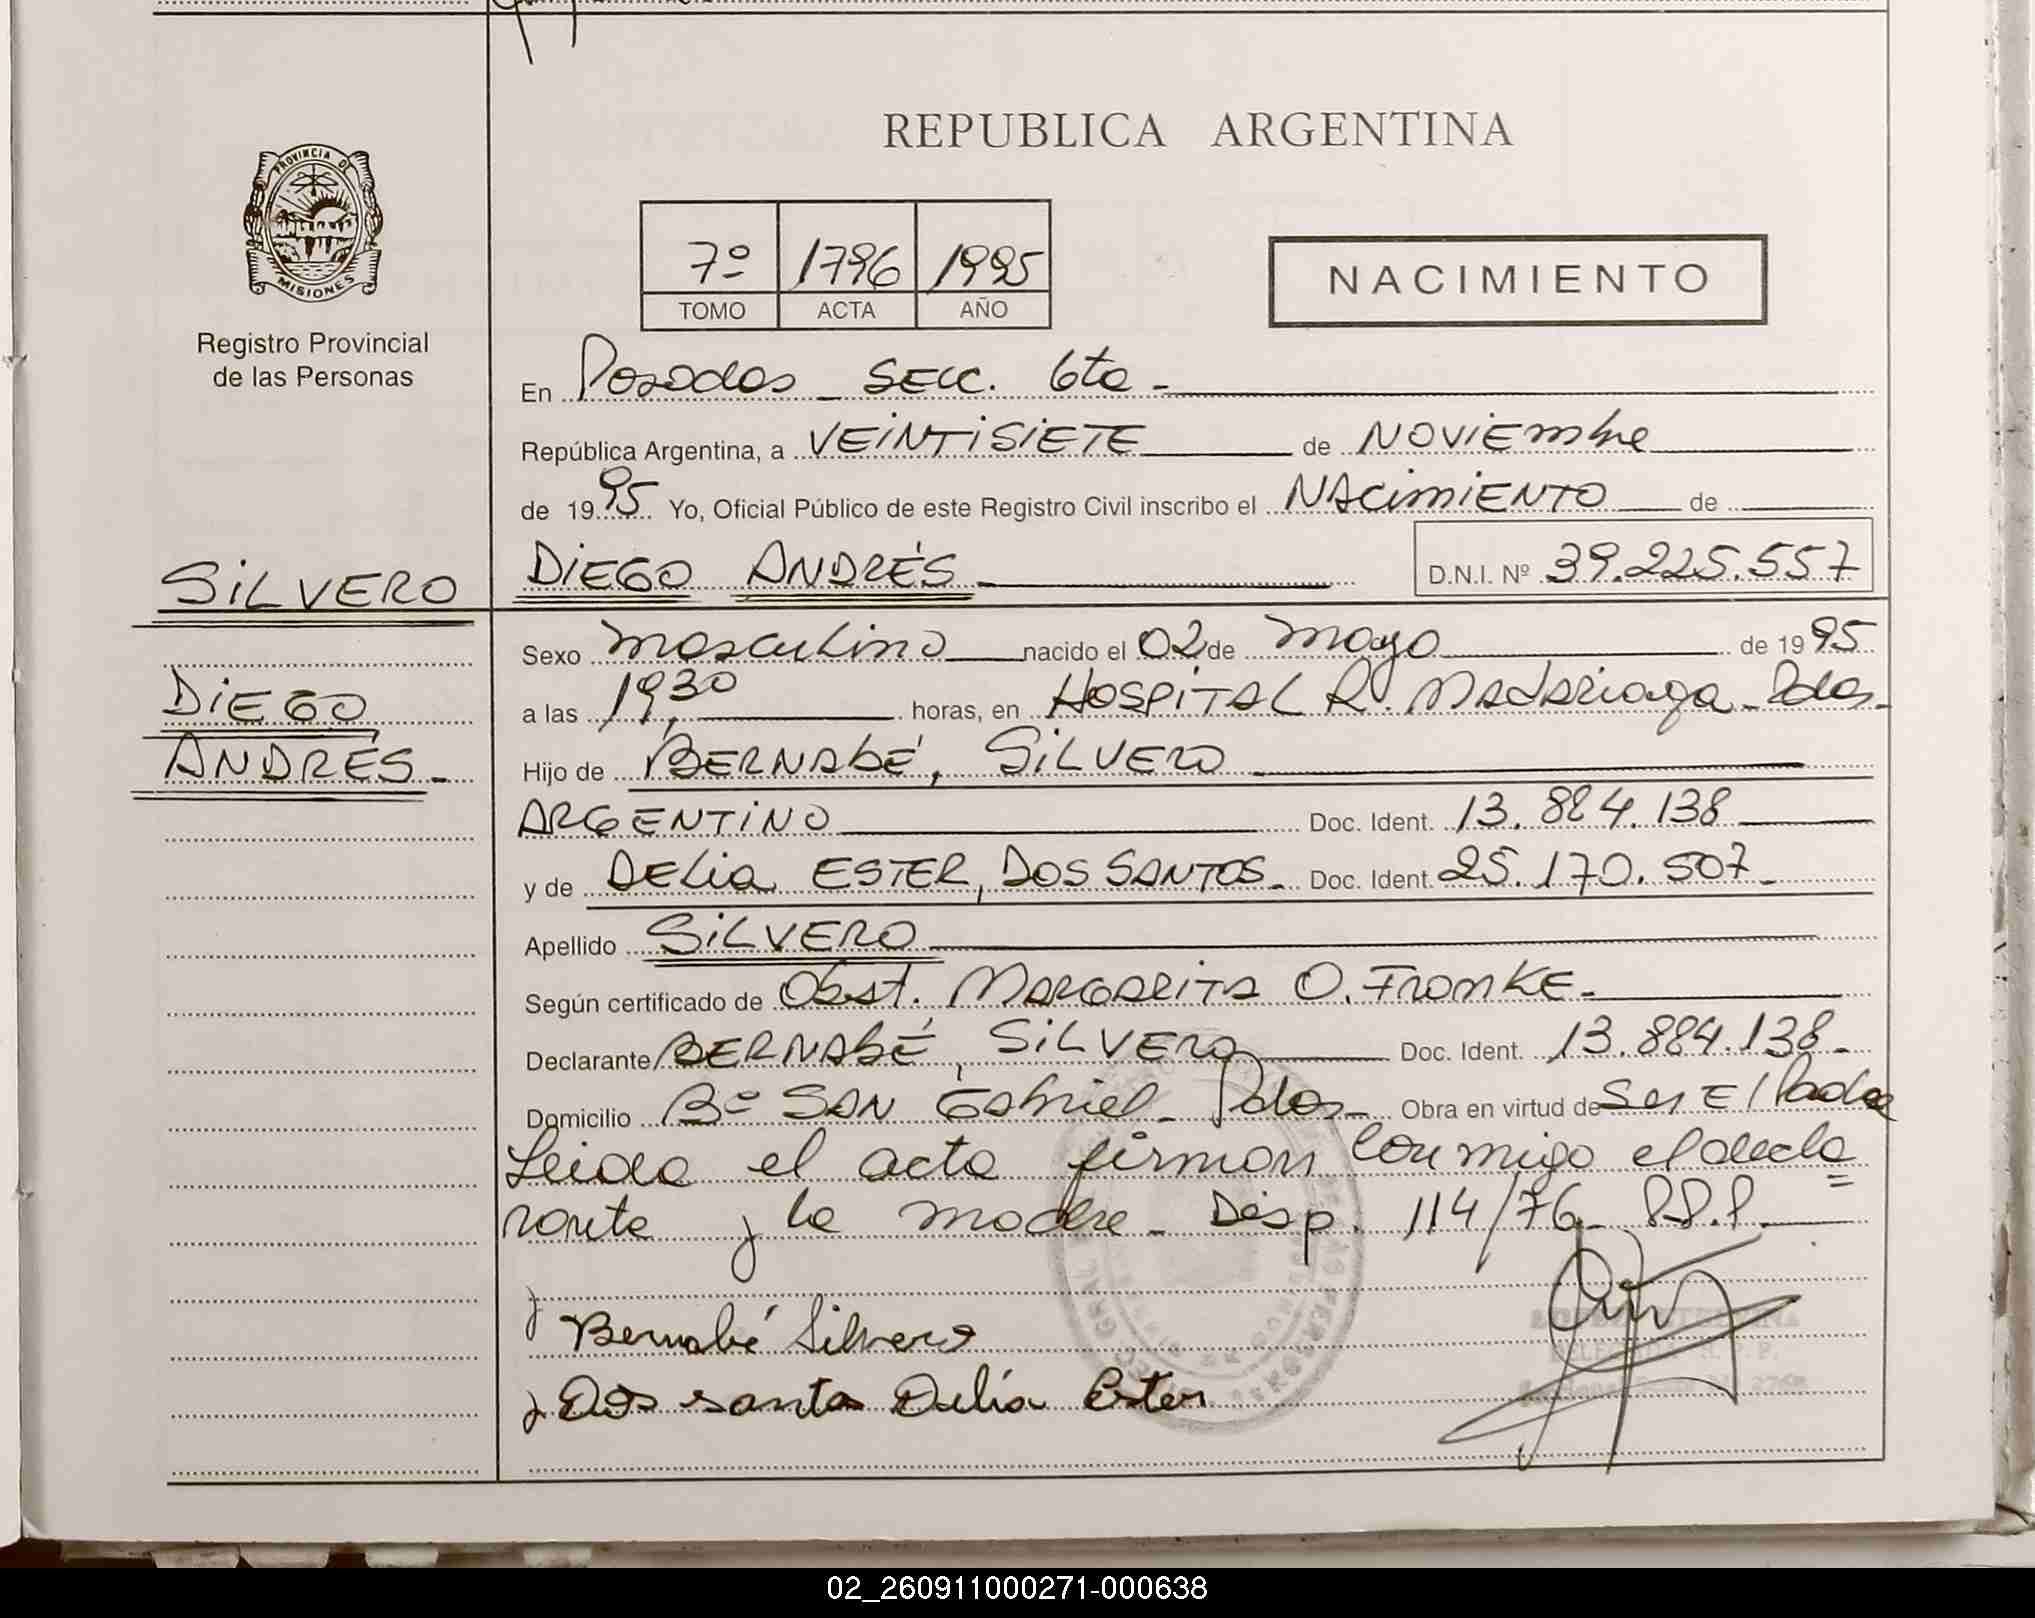 REPUBLICA ARGENTINA
PROVINCIA DE
MISIONES
Registro Provincial
de las Personas
7º 1796 1995
TOMO ACTA AÑO
NACIMIENTO
En Posadas - SECC. 6ta -
República Argentina, a VEINTISIETE de NOVIEMBRE
de 1995 Yo, Oficial Público de este Registro Civil inscribo el NACIMIENTO de
SILVERO
DIEGO ANDRÉS - D.N.I. Nº 39.225.557
Sexo masculino nacido el 02 de mayo de 1995
DIEGO
ANDRÉS -
a las 19,30 horas, en HOSPITAL R. MADARIAGA - Pdas -
Hijo de BERNABÉ, SILVERO
ARGENTINO Doc. Ident. 13.884.138
y de DELIA ESTER, DOS SANTOS - Doc. Ident. 25.170.507 -
Apellido SILVERO
Según certificado de Obst. MARGARITA O. FRANKE -
Declarante BERNABÉ, SILVERO Doc. Ident. 13.884.138 -
Domicilio Bº SAN Gabriel - Pdas - Obra en virtud de Ser El Padre
Leida el acta firman conmigo el decla
rante y la madre - Disp. 114/76 - R.P.P.
Bernabé Silvero
Dos santos Delia Ester
02_260911000271-000638